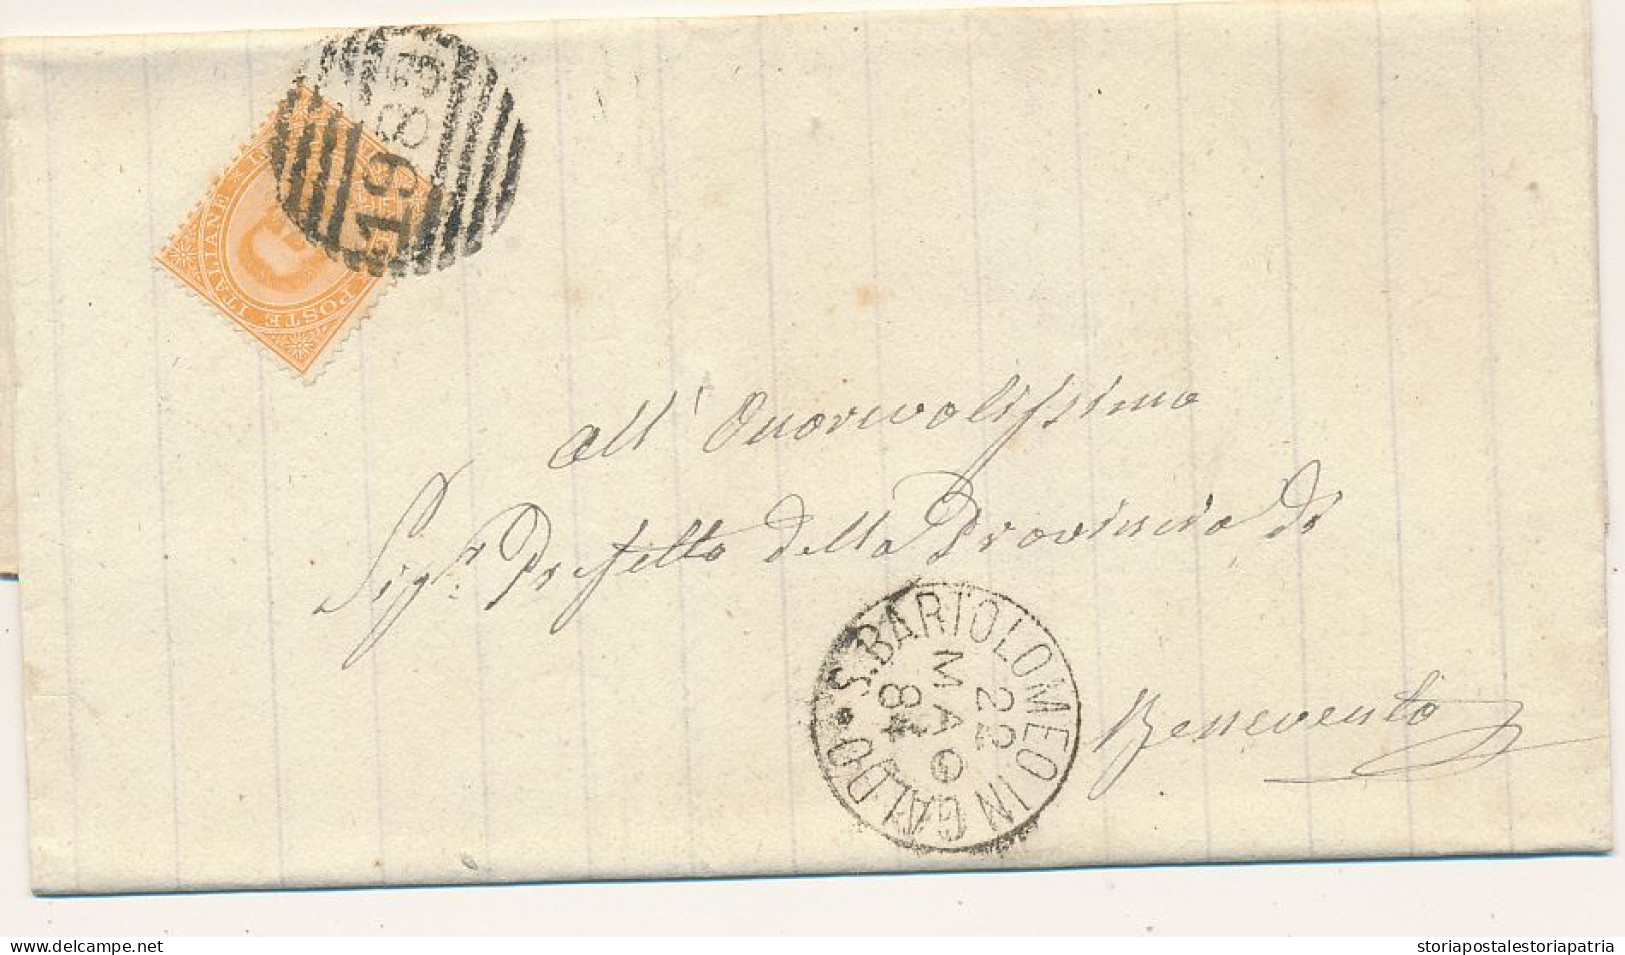 1983
POSTE ITALIANE
All' Onorevolissimo
Sigr. Prefetto della Provincia di
S. BARTOLOMEO IN GALDO
22
MAG
84
Benevento
storiapostalestoriapatria